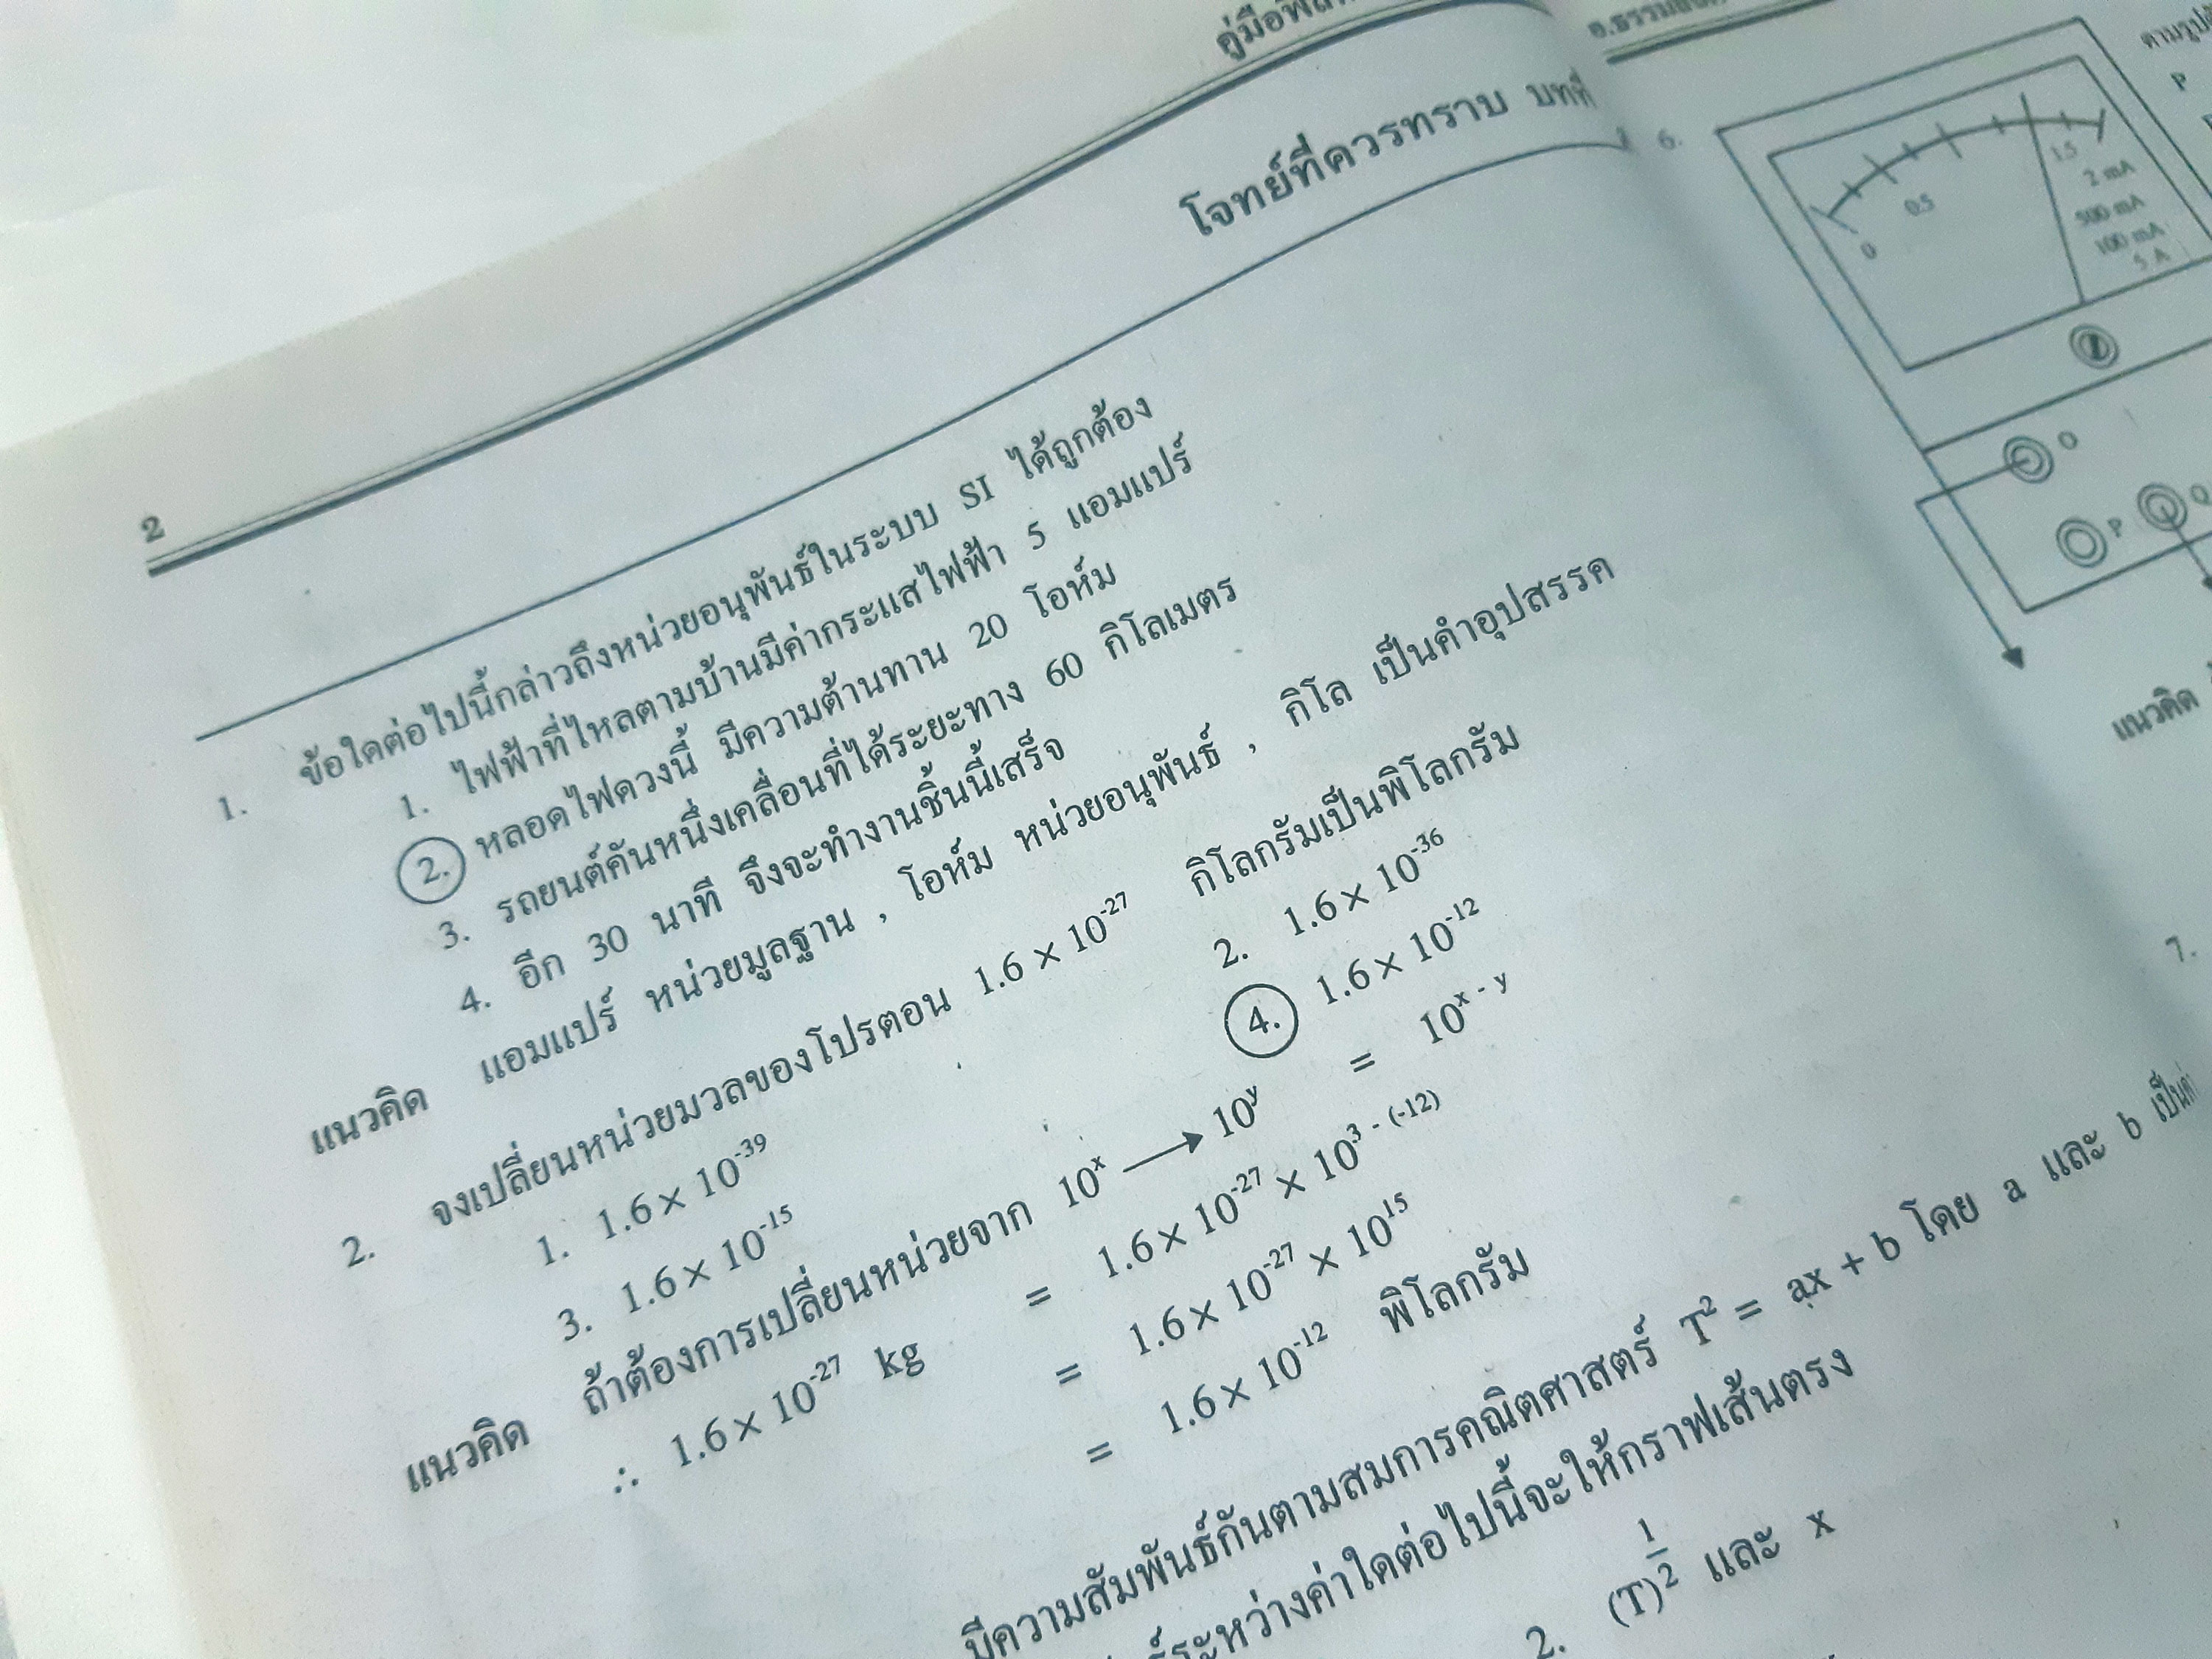 2
โจทย์ที่ควรทราบ บทที่
1. ข้อใดต่อไปนี้กล่าวถึงหน่วยอนุพันธ์ในระบบ SI ได้ถูกต้อง
1. ไฟฟ้าที่ไหลตามบ้านมีค่ากระแสไฟฟ้า 5 แอมแปร์
2. หลอดไฟดวงนี้ มีความต้านทาน 20 โอห์ม
3. รถยนต์คันหนึ่งเคลื่อนที่ได้ระยะทาง 60 กิโลเมตร
4. อีก 30 นาที จึงจะทำงานชิ้นนี้เสร็จ
แนวคิด แอมแปร์ หน่วยมูลฐาน , โอห์ม หน่วยอนุพันธ์ , กิโล เป็นคำอุปสรรค
2. จงเปลี่ยนหน่วยมวลของโปรตอน 1.6 × 10⁻²⁷ กิโลกรัมเป็นพิโลกรัม
1. 1.6 × 10⁻³⁹ 2. 1.6 × 10⁻³⁶
3. 1.6 × 10⁻¹⁵ 4. 1.6 × 10⁻¹²
แนวคิด ถ้าต้องการเปลี่ยนหน่วยจาก 10ˣ → 10ʸ = 10ˣ ⁻ ʸ
∴ 1.6 × 10⁻²⁷ kg = 1.6 × 10⁻²⁷ × 10³ ⁻ ⁽⁻¹²⁾
= 1.6 × 10⁻²⁷ × 10¹⁵
= 1.6 × 10⁻¹² พิโลกรัม
มีความสัมพันธ์กันตามสมการคณิตศาสตร์ T² = ax + b โดย a และ b
ระหว่างค่าใดต่อไปนี้จะให้กราฟเส้นตรง
2. (T)^(1/2) และ x
6.
0
0.5
1.5
2 mA
500 mA
100 mA
5 A
O
P
แนวคิด
7.